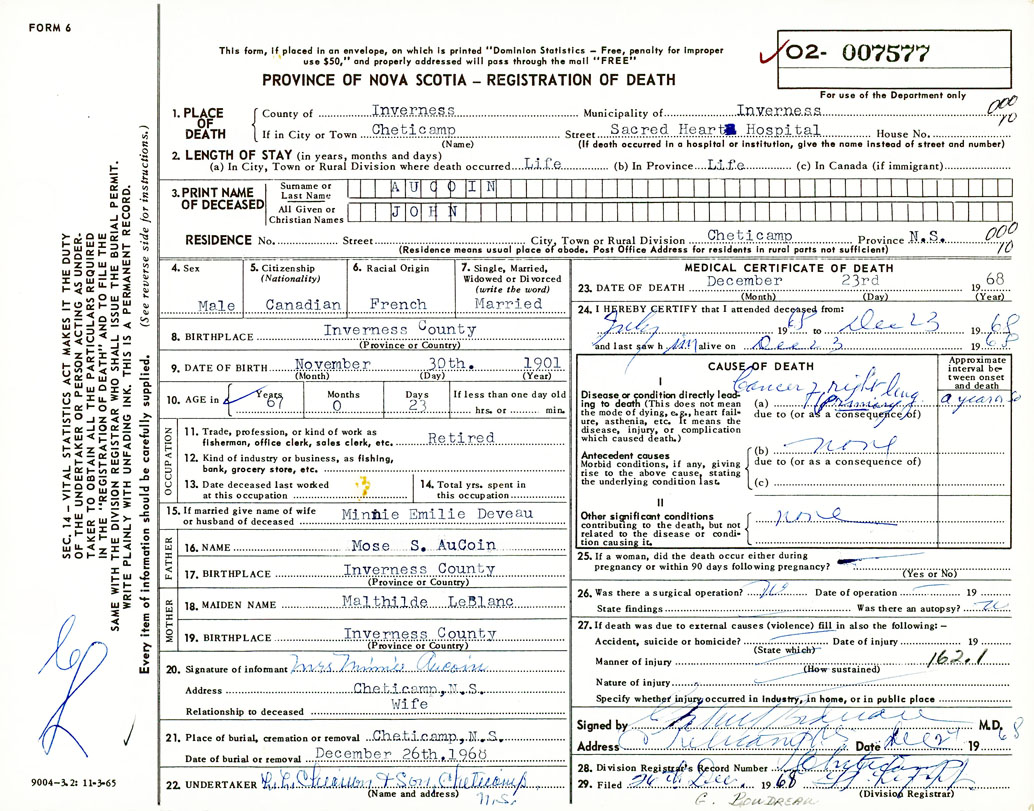 FORM 6
This form, if placed in an envelope, on which is printed "Dominion Statistics – Free, penalty for improper
use $50," and properly addressed will pass through the mail "FREE"
PROVINCE OF NOVA SCOTIA – REGISTRATION OF DEATH
02- 007577
For use of the Department only
1. PLACE OF DEATH
County of Inverness Municipality of Inverness 000 10
If in City or Town Cheticamp Street Sacred Heart Hospital House No.
(Name) (If death occurred in a hospital or institution, give the name instead of street and number)
2. LENGTH OF STAY (in years, months and days)
(a) In City, Town or Rural Division where death occurred Life (b) In Province Life (c) In Canada (if immigrant)
3. PRINT NAME OF DECEASED
Surname or Last Name AUCOIN
All Given or Christian Names JOHN
RESIDENCE No. Street City, Town or Rural Division Cheticamp Province N.S. 000 10
(Residence means usual place of abode. Post Office Address for residents in rural parts not sufficient)
4. Sex
Male
5. Citizenship
(Nationality)
Canadian
6. Racial Origin
French
7. Single, Married,
Widowed or Divorced
(write the word)
Married
8. BIRTHPLACE Inverness County
(Province or Country)
9. DATE OF BIRTH November 30th. 1901
(Month) (Day) (Year)
10. AGE in Years Months Days If less than one day old
67 0 23 hrs. or min.
OCCUPATION
11. Trade, profession, or kind of work as
fisherman, office clerk, sales clerk, etc. Retired
12. Kind of industry or business, as fishing,
bank, grocery store, etc.
13. Date deceased last worked
at this occupation ?
14. Total yrs. spent in
this occupation
15. If married give name of wife
or husband of deceased Minnie Emilie Deveau
FATHER
16. NAME Mose S. AuCoin
17. BIRTHPLACE Inverness County
(Province or Country)
MOTHER
18. MAIDEN NAME Malthilde LeBlanc
19. BIRTHPLACE Inverness County
(Province or Country)
20. Signature of informant Mrs Minnie Aucoin
Address Cheticamp, N.S.
Relationship to deceased Wife
21. Place of burial, cremation or removal Cheticamp, N.S.
Date of burial or removal December 26th, 1968
22. UNDERTAKER & Son Cheticamp
(Name and address) N.S.
MEDICAL CERTIFICATE OF DEATH
23. DATE OF DEATH December 23rd 1968
(Month) (Day) (Year)
24. I HEREBY CERTIFY that I attended deceased from:
July 1968 to Dec 23 1968
and last saw h im alive on Dec 23 1968
CAUSE OF DEATH
Approximate
interval be-
tween onset
and death
I
Disease or condition directly lead-
ing to death (This does not mean
the mode of dying, e.g., heart fail-
ure, asthenia, etc. It means the
disease, injury, or complication
which caused death.)
Cancer of right lung
(a) primary
due to (or as a consequence of)
Antecedent causes
Morbid conditions, if any, giving
rise to the above cause, stating
the underlying condition last.
(b) none
due to (or as a consequence of)
(c)
II
Other significant conditions
contributing to the death, but not
related to the disease or condi-
tion causing it.
none
25. If a woman, did the death occur either during
pregnancy or within 90 days following pregnancy?
(Yes or No)
26. Was there a surgical operation? no Date of operation 19
State findings Was there an autopsy? no
27. If death was due to external causes (violence) fill in also the following: –
Accident, suicide or homicide? Date of injury 19
(State which)
Manner of injury 162.1
(How sustained)
Nature of injury
Specify whether injury occurred in industry, in home, or in public place
Signed by M.D.
Address Cheticamp Date Dec 27 1968
28. Division Registrar's Record Number
29. Filed 26th Dec. 1968
(Division Registrar)
G. BOUDREAU
SEC. 14 – VITAL STATISTICS ACT MAKES IT THE DUTY
OF THE UNDERTAKER OR PERSON ACTING AS UNDER-
TAKER TO OBTAIN ALL THE PARTICULARS REQUIRED
IN THE "REGISTRATION OF DEATH" AND TO FILE THE
SAME WITH THE DIVISION REGISTRAR WHO SHALL ISSUE THE BURIAL PERMIT.
WRITE PLAINLY WITH UNFADING INK. THIS IS A PERMANENT RECORD.
Every item of information should be carefully supplied. (See reverse side for instructions.)
9004–3.2: 11-3-65